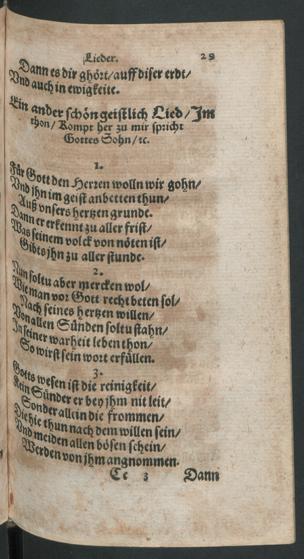 Lieder. 29
Dann es dir ghört/ auff diser erdt/
Vnd auch in ewigkeite.
Ein ander schön geistlich Lied/ Im
thon/ Kompt her zu mir spricht
Gottes Sohn/ ꝛc.
1.
Für Gott den Herren wolln wir gohn/
Vnd jhn im geist anbetten thun/
Auß vnsers hertzen grunde.
Dann er erkennt zu aller frist/
Was seinem volck von nöten ist/
Gibts jhn zu aller stunde.
2.
Nun soltu aber mercken wol/
Wie man vor Gott recht beten sol/
Nach seines hertzen willen/
Von allen Sünden soltu stahn/
In seiner warheit leben thon/
So wirst sein wort erfüllen.
3.
Gotts wesen ist die reinigkeit/
Kein Sünder er bey jhm nit leit/
Sonder allein die frommen/
Die hie thun nach dem willen sein/
Vnd meiden allen bösen schein/
Werden von jhm angnommen.
Ce 3 Dann